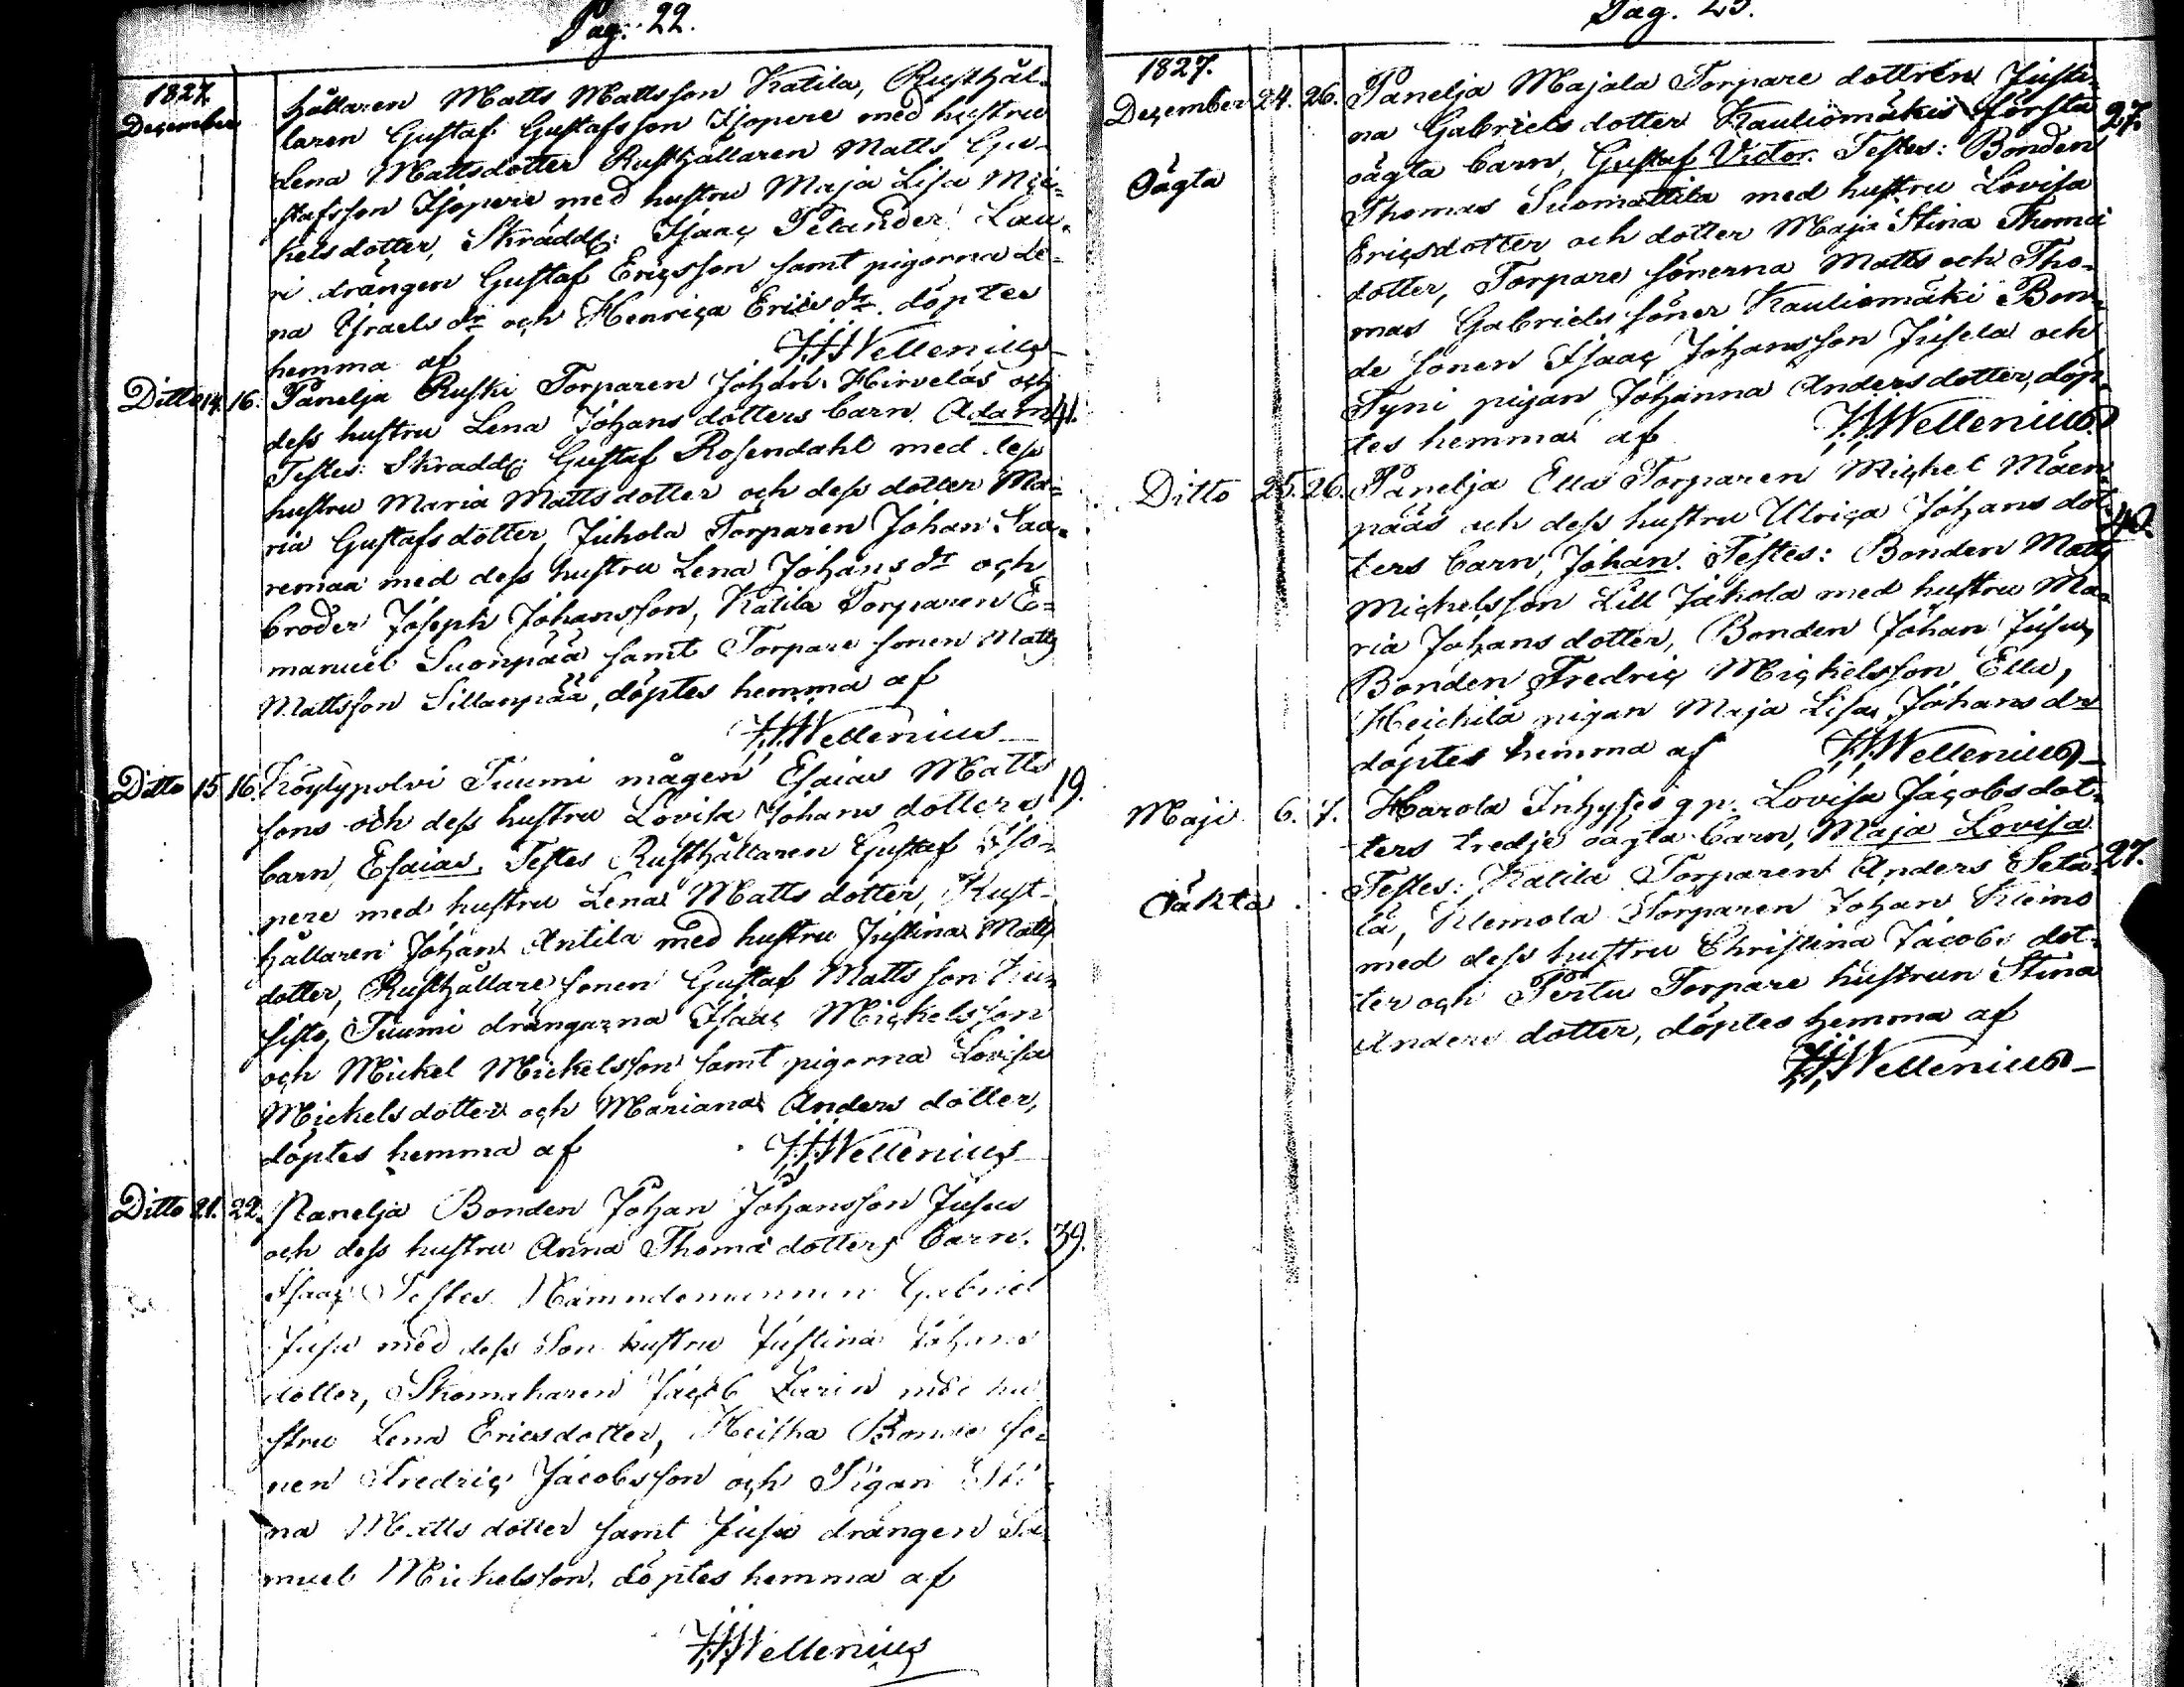 Pag. 22.
1827.
December
hållaren Matts Mattsson Katila, Rusthål-
laren Gustaf Gustafsson Isopere med hustru
Lena Mattsdotter Rusthållaren Matts Gu-
stafsson Isopere med hustru Maja Lisa Mic-
kelsdotter, Skrädd: Isaac Pelander Lau-
ri drängen Gustaf Ericsson samt pigorna Le-
na Israels dr och Henrica Erics dr. döptes
hemma af
Wellenius
Ditto 14. 16. Panelja Ruski Torparen Johan Hirvelas och
dess hustru Lena Johans dotters barn Adam 41.
Testes: Skrädd: Gustaf Rosendahl med dess
hustru Maria Matts dotter och dess dotter Ma-
ria Gustafs dotter, Juhola Torparen Johan Saa-
remaa med dess hustru Lena Johans dr och
broder Joseph Johansson, Katila Torparen E-
manuel Suonpää samt Torpare sonen Matts
Mattsson Sillanpää, döptes hemma af
Wellenius
Ditto 15 16. Köylypolvi Tuumi mågen Esaias Matts
sons och dess hustru Lovisa Johans dotters 19.
barn, Esaias. Testes Rusthållaren Gustaf Iso-
pere med hustru Lena Matts dotter, Rust-
hållaren Johan Antila med hustru Justina Matts
dotter, Rusthållare sonen Gustaf Matts son
sisto, Tuumi drängarna Isaac Mickelsson
och Mickel Mickelsson samt pigorna Lovisa
Mickels dotter och Mariana Anders dotter,
döptes hemma af
Wellenius
Ditto 21. 22. Panelja Bonden Johan Johansson Jusu
och dess hustru Anna Thomæ dotters barn. 39.
Isaac Testes Nämndemannen Gabriel
Jusu med dess Son hustru Justina Johans
dotter, Skomakaren Jacob Larin med hu
stru Lena Ericsdotter, Bonde so-
nen Fredric Jacobsson och Pigan Sti-
na Matts dotter samt Jusu drängen Sa-
muel Mickelsson, döptes hemma af
Wellenius
Pag. 23.
1827.
December 24. 26. Panelja Majala Torpare dottren Justi-
na Gabriels dotter Kauliomäkis första 27.
oägta barn, Gustaf Victor. Testes: Bonden
Oägta
Thomas Suomattila med hustru Lovisa
Ericsdotter och dotter Maja Stina Thomæ
dotter, Torpare sönerna Matts och Tho-
mas Gabriels söner Kauliomäki Bon-
de sonen Isaac Johansson Jusela och
Tyni pigan Johanna Anders dotter, döp-
tes hemma af
Wellenius
Ditto 25. 26. Panelja Ella Torparen Michel Mäen-
pääs och dess hustru Ulrica Johans dot-
ters barn, Johan. Testes: Bonden Matts 40.
Michelsson Lill Jakola med hustru Ma-
ria Johans dotter, Bonden Johan Jusu,
Bonden Fredric Mickelsson Ella,
Heickilä pigan Maja Lisa Johans dr
döptes hemma af
Wellenius
Maji 6. 7. Harola Inhyses qp. Lovisa Jacobs dot-
ters tredje oägta barn, Maja Lovisa 27.
Oäkta
Testes: Katila Torparen Anders Setä-
lä, Klemola Torparen Johan Kleimo
med dess hustru Christina Jacobs dot-
ter och Perttu Torpare hustrun Stina
Anders dotter, döptes hemma af
Wellenius